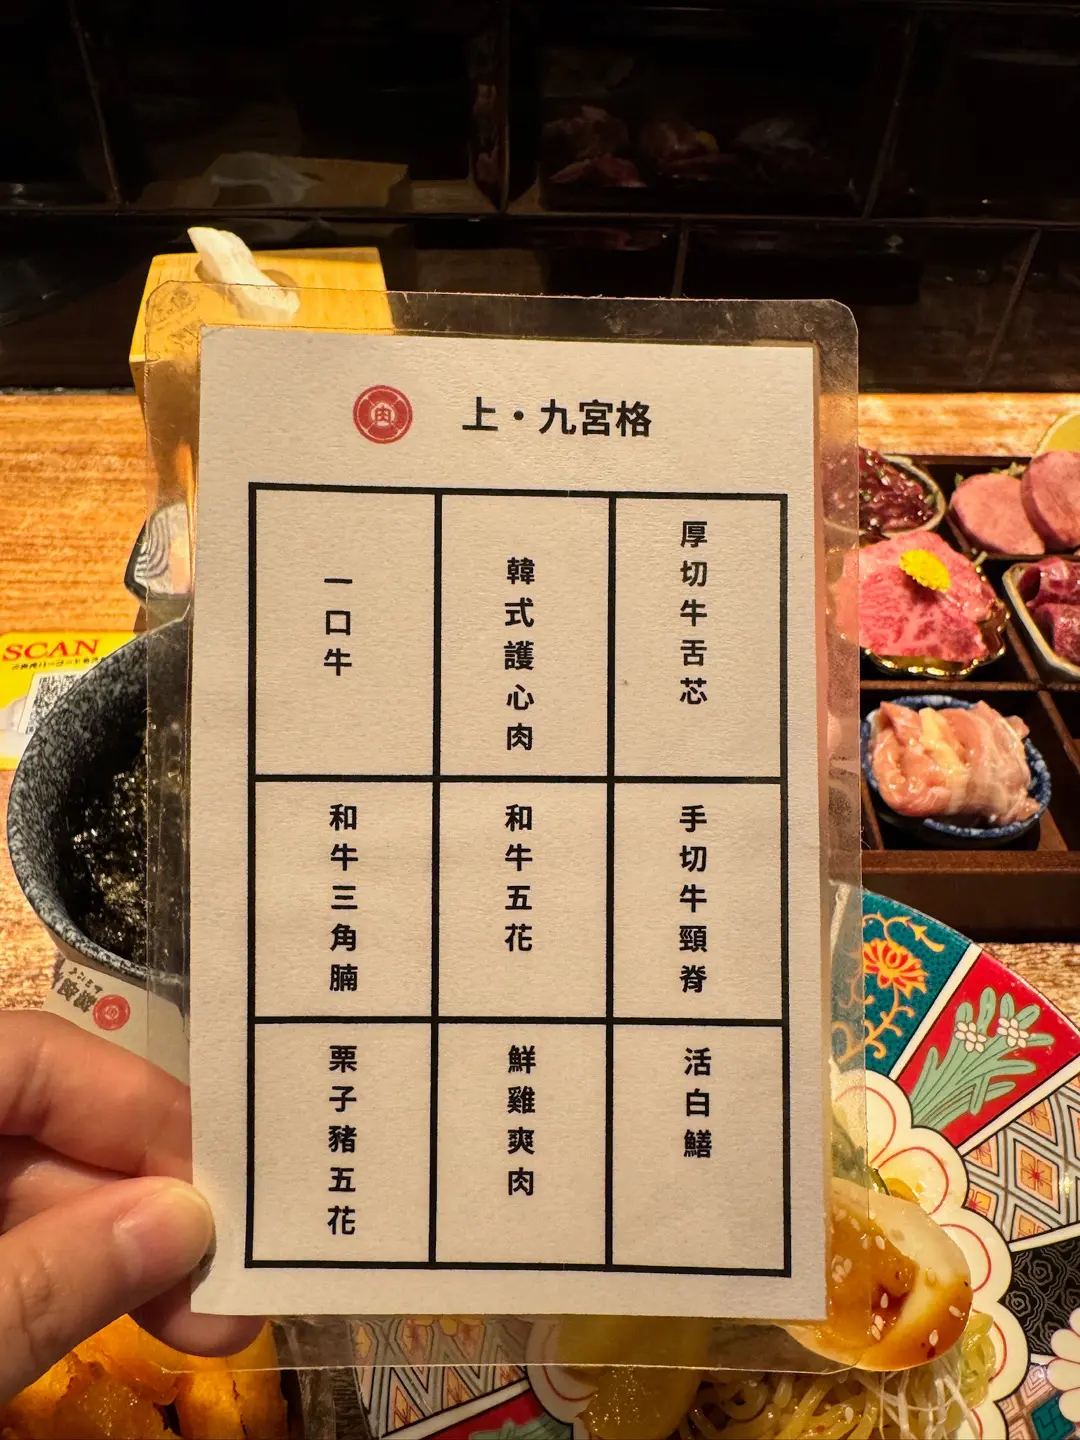 肉
上・九宮格
一口牛
韓式護心肉
厚切牛舌芯
和牛三角腩
和牛五花
手切牛頸脊
栗子豬五花
鮮雞爽肉
活白鱔
SCAN